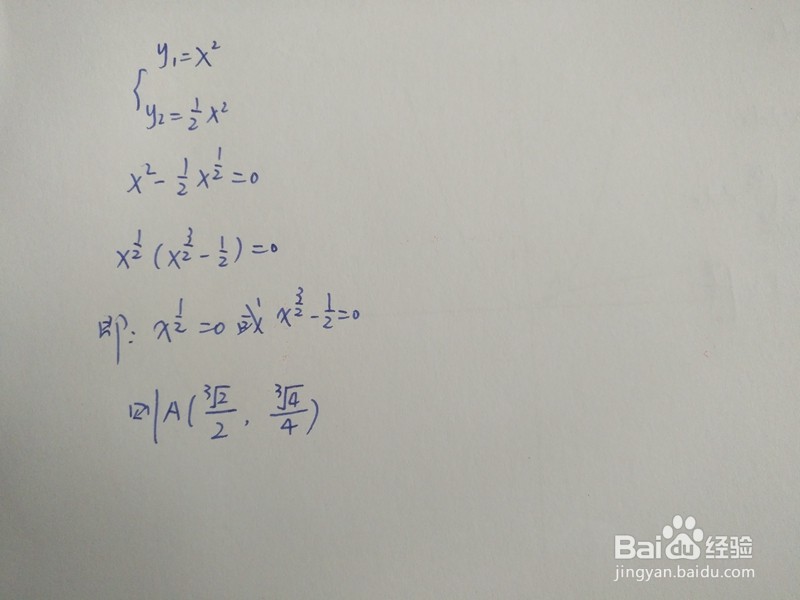 y₁=x²
y₂=½x²
x²-½x^½=0
x^½(x^(3/2)-½)=0
即: x^½=0 或 x^(3/2)-½=0
则A(∛2/2, ∛4/4)
Baidu经验
jingyan.baidu.com